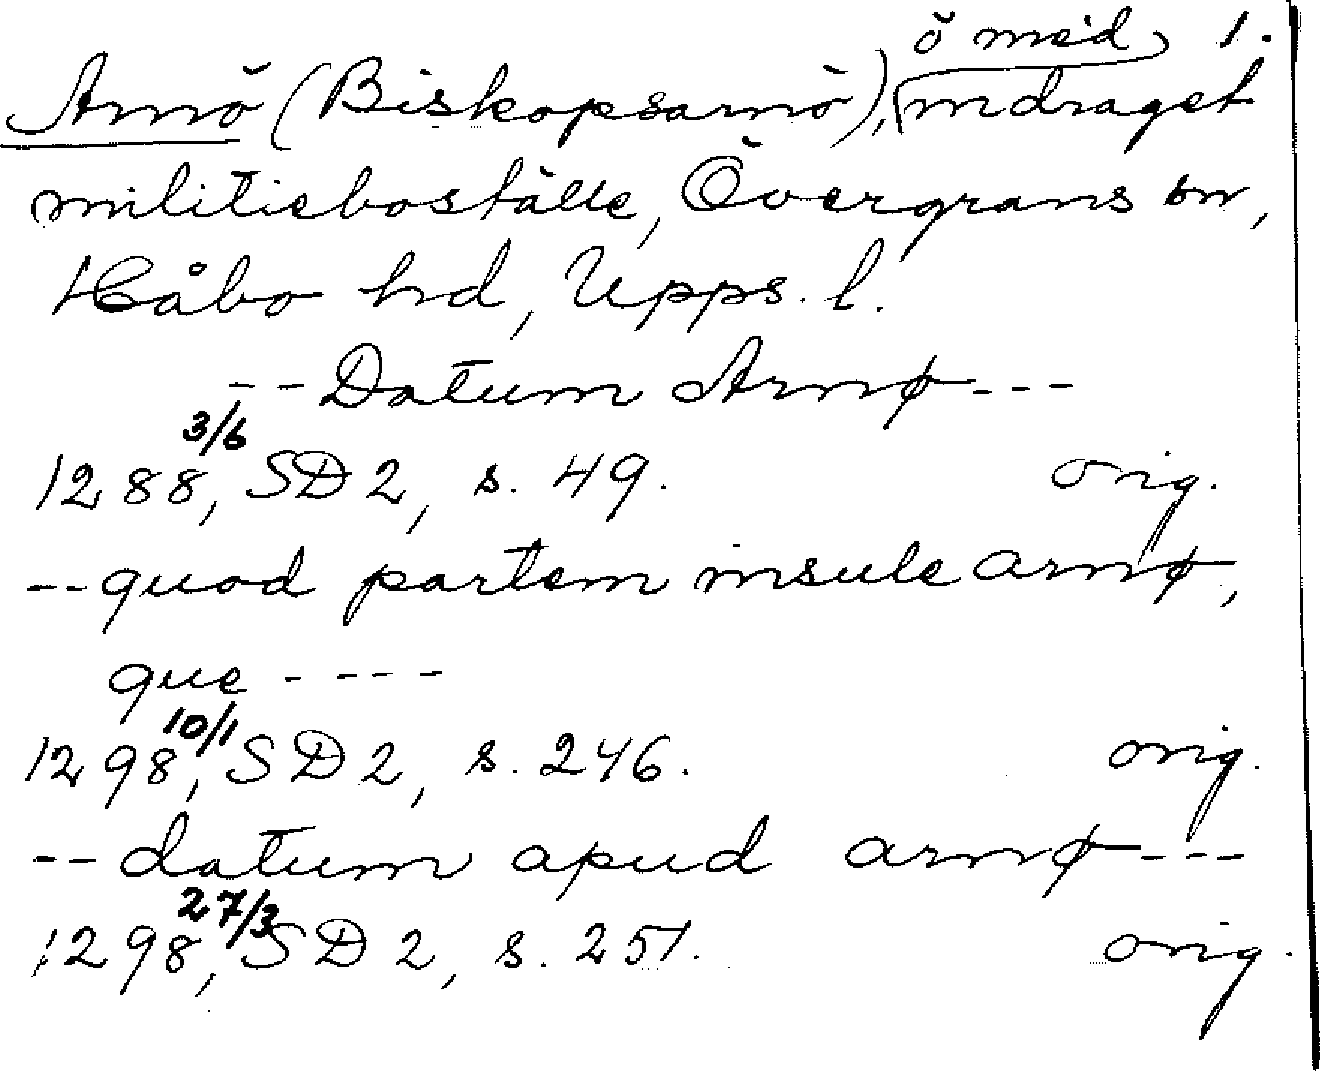 ö med 1.
Arnö (Biskopsarnö), indraget
militieboställe, Övergrans sn,
Håbo hd, Upps. l.
-- Datum Arnø ---
3/6
1288, SD 2, s. 49. orig.
-- quod partem insule arnø,
que ----
10/1
1298, SD 2, s. 246. orig.
-- datum apud arnø ---
27/3
1298, SD 2, s. 251. orig.